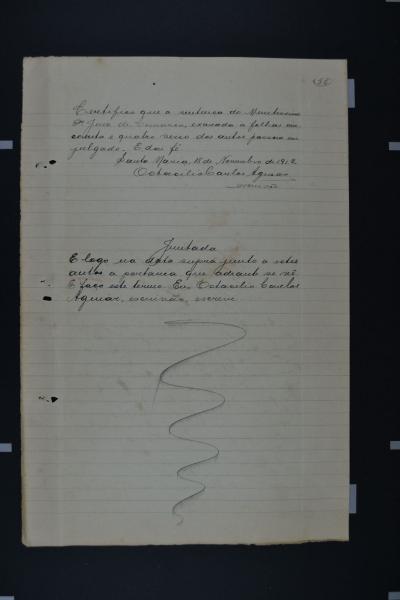 Certifico que a sentença do Meretissimo
Dr Juiz de Comarca, exarada a folhas
coenta e quatro verso dos autos passou em
julgado. E dou fé
Santa Maria, 18 de Novembro de 1912
Octacilio Carlos Aguiar
escrivão
Juntada
E logo na data supra junto a estes
autos a portaria que adiante se vê.
E faço este termo. Eu, Octacilio Carlos
Aguiar, escrivão, escrevi